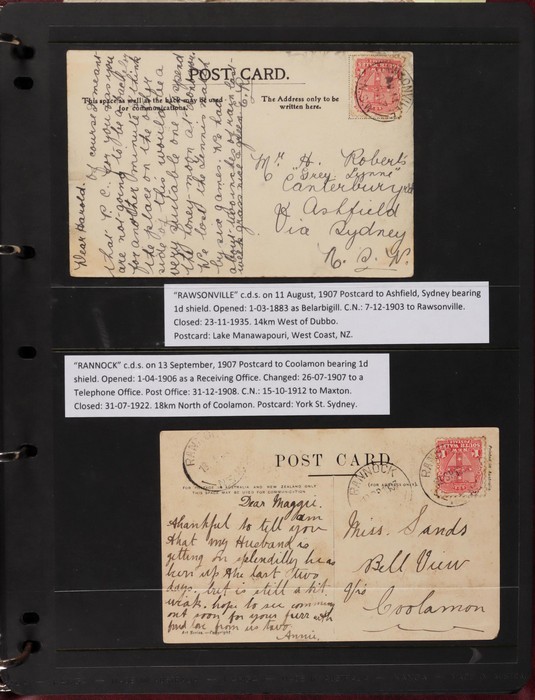 POST CARD.
This space as well as the back may be used
for communications.
The Address only to be
written here.
Dear Harold. Of course I meant
that P.C. for you was you
are not going to be a
for another minute I think
the place on the other
side of this would be a
very suitable one to spend
the honey-moon at
We lost the Tennis match
by six games. We had
about two inches of rain last
week
Mr H. Roberts
C/o "Grey Lynne"
Canterbury rd
Ashfield
Via Sydney
N.S.W.
"RAWSONVILLE" c.d.s. on 11 August, 1907 Postcard to Ashfield, Sydney bearing
1d shield. Opened: 1-03-1883 as Belarbigill. C.N.: 7-12-1903 to Rawsonville.
Closed: 23-11-1935. 14km West of Dubbo.
Postcard: Lake Manawapouri, West Coast, NZ.
"RANNOCK" c.d.s. on 13 September, 1907 Postcard to Coolamon bearing 1d
shield. Opened: 1-04-1906 as a Receiving Office. Changed: 26-07-1907 to a
Telephone Office. Post Office: 31-12-1908. C.N.: 15-10-1912 to Maxton.
Closed: 31-07-1922. 18km North of Coolamon. Postcard: York St. Sydney.
POST CARD
RANNOCK
FOR USE IN AUSTRALIA AND NEW ZEALAND ONLY
THIS SPACE MAY BE USED FOR COMMUNICATION
Dear Maggie.
am
thankful to tell you
that my Husband is
getting on splendidly has
been up the last two
days. but is still a bit
weak. hope to see
out soon for your with
fond love from us two
Annie.
Miss. Sands
Bell View
Via
Coolamon